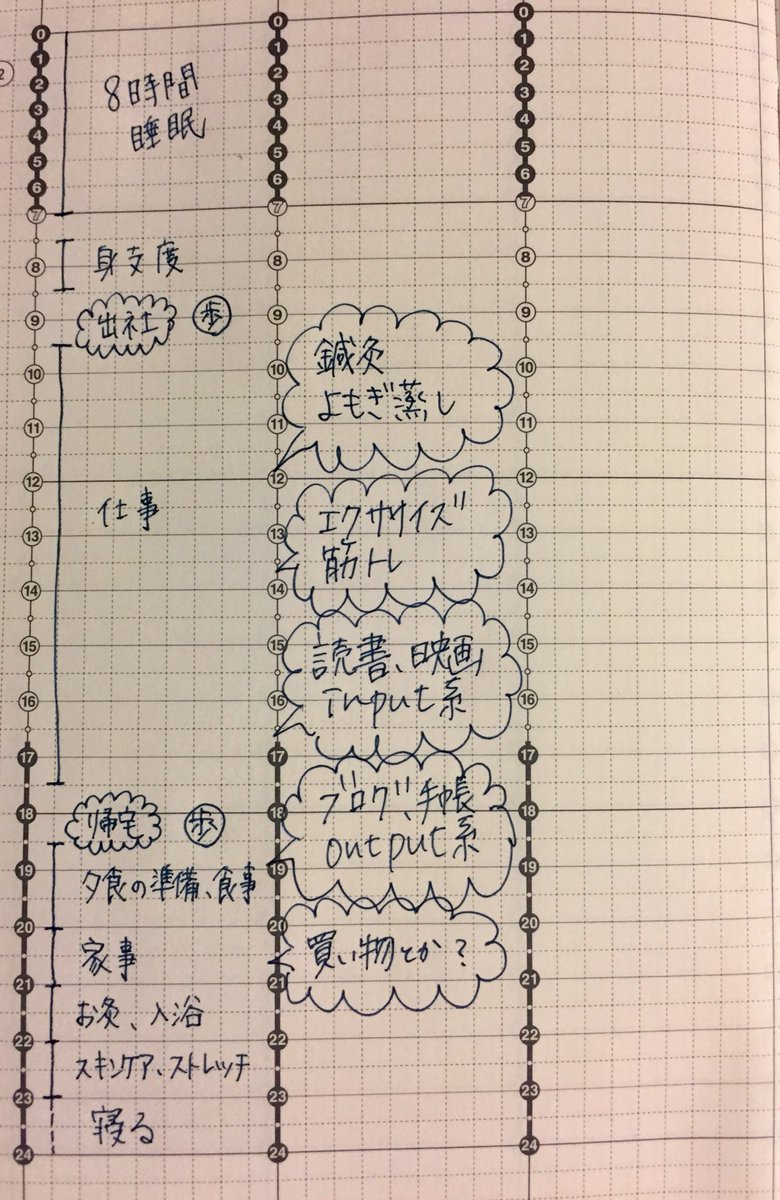 2
0
1
2
3
4
5
6
7
8
9
10
11
12
13
14
15
16
17
18
19
20
21
22
23
24
8時間
睡眠
身支度
出社 歩
仕事
帰宅 歩
夕食の準備、食事
家事
お灸、入浴
スキンケア、ストレッチ
寝る
0
1
2
3
4
5
6
7
8
9
10
11
12
13
14
15
16
17
18
19
20
21
22
23
24
鍼灸
よもぎ蒸し
エクササイズ
筋トレ
読書、映画
Input系
ブログ、手帳
output系
買い物とか?
0
1
2
3
4
5
6
7
8
9
10
11
12
13
14
15
16
17
18
19
20
21
22
23
24